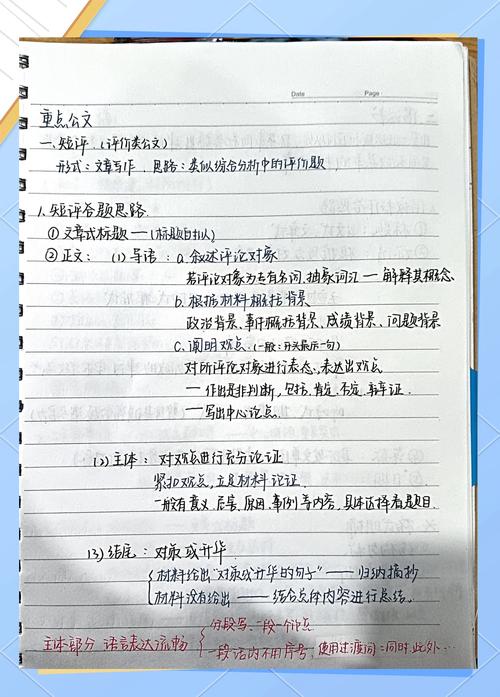 Date
Page
重点公文
一.短评（评价类公文）
形式：文章写作．思路：类似综合分析中的评价题
1.短评答题思路.
①文章式标题 —（标题自拟）
②正文： (1)导语：a.叙述评论对象
若评论对象为专有名词、抽象词汇 — 解释其概念
b.根据材料概括背景
政治背景、事件概括背景、成绩背景、问题背景
c.阐明观点.(一般：开头最后一句)
对所评论对象进行表态,表达出观点
— 作出是非判断,包括肯定、否定、辩证.
— 写出中心论点.
(2)主体：对观点进行充分论证
紧扣观点,立足材料论证.
一般有意义、危害、原因、事例等内容,具体选择看题目.
(3)结尾：对策或升华
材料给出"对策或升华的句子" —— 归纳摘抄
材料没有给出 —— 结合总体内容进行总结.
主体部分 语言表达流畅
分段写、一段一个论点
一段话内不用序号,使用过渡词：同时、此外…